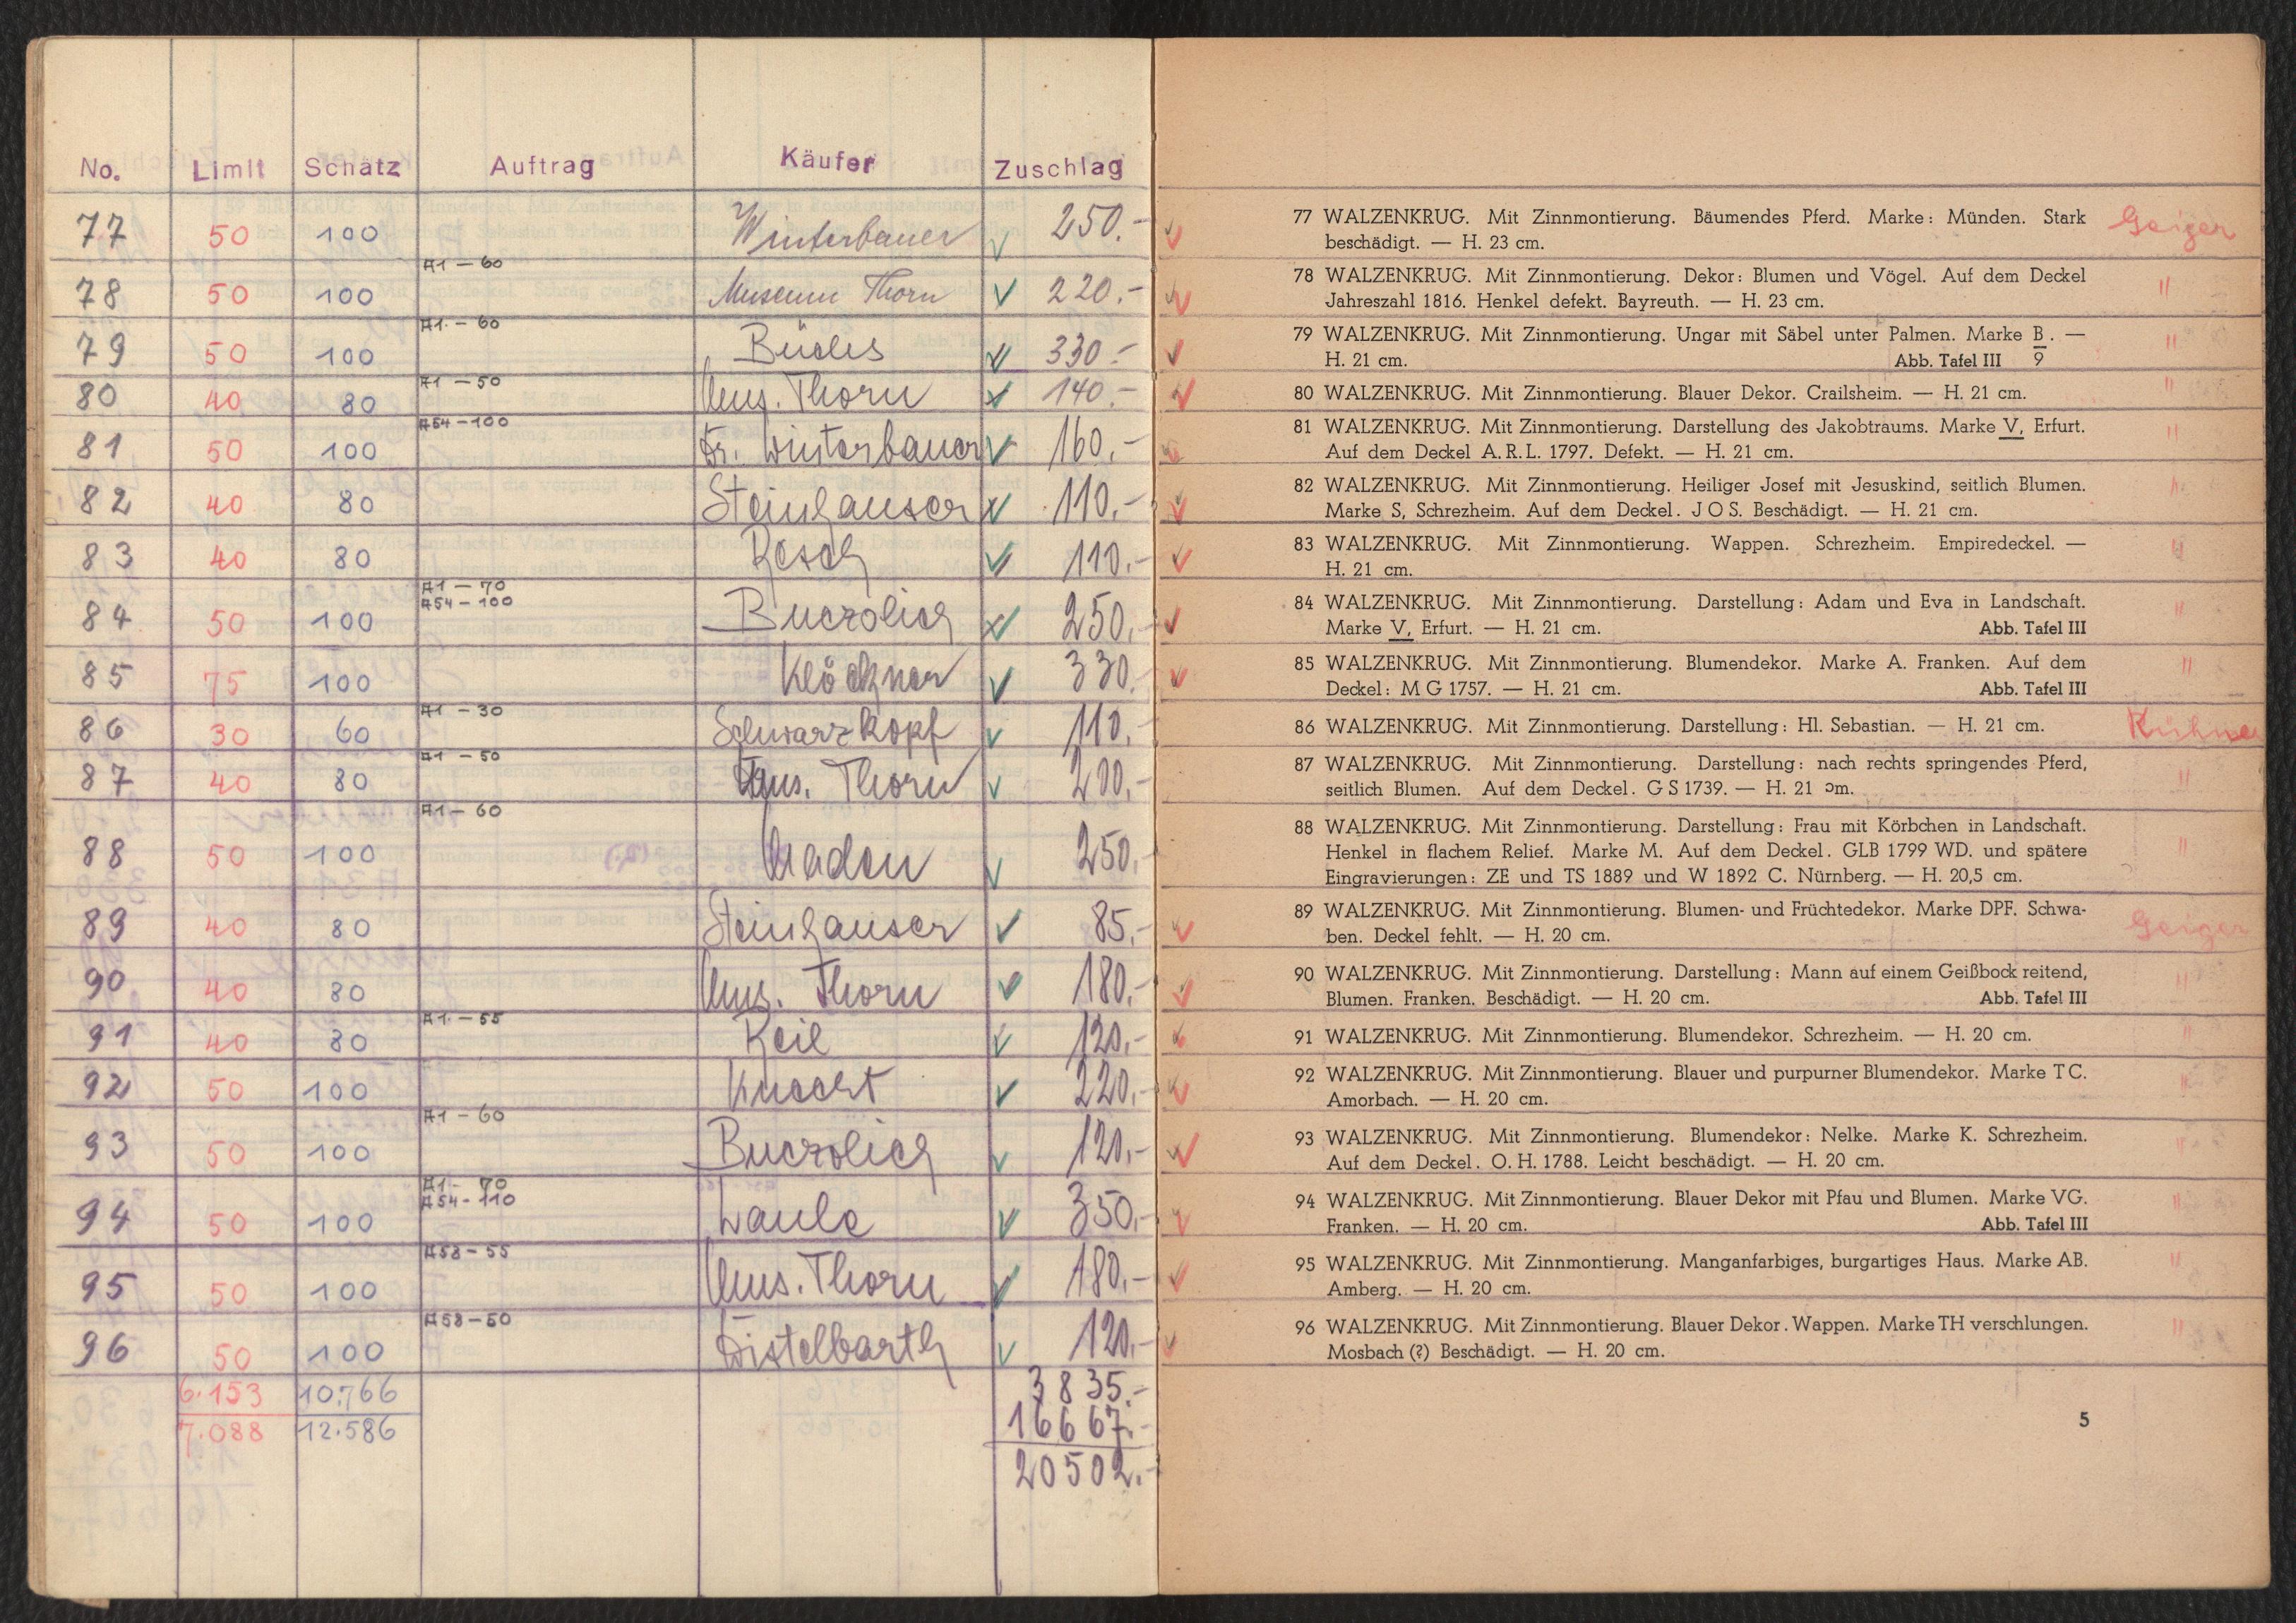 No. Limit Schätz Auftrag Käufer Zuschlag
77 50 100 Winterbauer 250.-
78 50 100 A1 - 60 Museum Thorn 220.-
79 50 100 A1. - 60 330.-
80 40 80 A1 - 50 Mus. Thorn 140.-
81 50 100 A54 - 100 Dr. Winterbauer 160.-
82 40 80 Steinhauser 110.-
83 40 80 Resch 110.-
84 50 100 A1 - 70 A54 - 100 Buczolich 250.-
85 75 100 Klöckner 330.
86 30 60 A1 - 30 Schwarzkopf 110.
87 40 80 A1 - 50 Mus. Thorn 200.-
88 50 100 A1 - 60 250.
89 40 80 Steinhauser 85.-
90 40 80 Mus. Thorn 180.-
91 40 80 A1. - 55 Keil 120.-
92 50 100 Knecht 220.-
93 50 100 A1 - 60 Buczolich 120.-
94 50 100 A1 - 70 A54 - 110 Laule 350.-
95 50 100 A58 - 55 Mus. Thorn 180.-
96 50 100 A58 - 50 Distelbarth 120.-
6.153 10.766 3835.-
7.088 12.586 16667.-
20502.-
77 WALZENKRUG. Mit Zinnmontierung. Bäumendes Pferd. Marke: Münden. Stark Geiger
beschädigt. — H. 23 cm.
78 WALZENKRUG. Mit Zinnmontierung. Dekor: Blumen und Vögel. Auf dem Deckel "
Jahreszahl 1816. Henkel defekt. Bayreuth. — H. 23 cm.
79 WALZENKRUG. Mit Zinnmontierung. Ungar mit Säbel unter Palmen. Marke B. — "
H. 21 cm. Abb. Tafel III 9
80 WALZENKRUG. Mit Zinnmontierung. Blauer Dekor. Crailsheim. — H. 21 cm. "
81 WALZENKRUG. Mit Zinnmontierung. Darstellung des Jakobtraums. Marke V, Erfurt. "
Auf dem Deckel A. R. L. 1797. Defekt. — H. 21 cm.
82 WALZENKRUG. Mit Zinnmontierung. Heiliger Josef mit Jesuskind, seitlich Blumen. "
Marke S, Schrezheim. Auf dem Deckel. J O S. Beschädigt. — H. 21 cm.
83 WALZENKRUG. Mit Zinnmontierung. Wappen. Schrezheim. Empiredeckel. — "
H. 21 cm.
84 WALZENKRUG. Mit Zinnmontierung. Darstellung: Adam und Eva in Landschaft. "
Marke V, Erfurt. — H. 21 cm. Abb. Tafel III
85 WALZENKRUG. Mit Zinnmontierung. Blumendekor. Marke A. Franken. Auf dem "
Deckel: M G 1757. — H. 21 cm. Abb. Tafel III
86 WALZENKRUG. Mit Zinnmontierung. Darstellung: Hl. Sebastian. — H. 21 cm.
87 WALZENKRUG. Mit Zinnmontierung. Darstellung: nach rechts springendes Pferd, "
seitlich Blumen. Auf dem Deckel. G S 1739. — H. 21 cm.
88 WALZENKRUG. Mit Zinnmontierung. Darstellung: Frau mit Körbchen in Landschaft. "
Henkel in flachem Relief. Marke M. Auf dem Deckel. GLB 1799 WD. und spätere
Eingravierungen: ZE und TS 1889 und W 1892 C. Nürnberg. — H. 20,5 cm.
89 WALZENKRUG. Mit Zinnmontierung. Blumen- und Früchtedekor. Marke DPF. Schwa- Geiger
ben. Deckel fehlt. — H. 20 cm.
90 WALZENKRUG. Mit Zinnmontierung. Darstellung: Mann auf einem Geißbock reitend, "
Blumen. Franken. Beschädigt. — H. 20 cm. Abb. Tafel III
91 WALZENKRUG. Mit Zinnmontierung. Blumendekor. Schrezheim. — H. 20 cm. "
92 WALZENKRUG. Mit Zinnmontierung. Blauer und purpurner Blumendekor. Marke T C. "
Amorbach. — H. 20 cm.
93 WALZENKRUG. Mit Zinnmontierung. Blumendekor: Nelke. Marke K. Schrezheim. "
Auf dem Deckel. O. H. 1788. Leicht beschädigt. — H. 20 cm.
94 WALZENKRUG. Mit Zinnmontierung. Blauer Dekor mit Pfau und Blumen. Marke VG. "
Franken. — H. 20 cm. Abb. Tafel III
95 WALZENKRUG. Mit Zinnmontierung. Manganfarbiges, burgartiges Haus. Marke AB. "
Amberg. — H. 20 cm.
96 WALZENKRUG. Mit Zinnmontierung. Blauer Dekor. Wappen. Marke TH verschlungen. "
Mosbach (?) Beschädigt. — H. 20 cm.
5